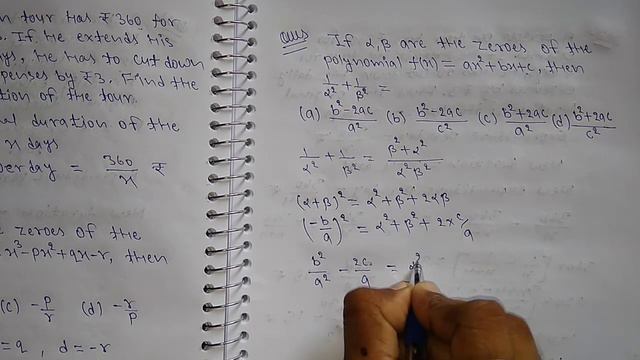 n tour has ₹360 for
s. If He extends His
ays, He has to cut down
penses by ₹3. Find the
tion of the tour.
al duration of the
x days
per day = 360/x ₹
e zeroes of the
x³-px²+qx-r, then
(c) -p/r (d) -r/p
= q, d = -r
Ques If α,β are the zeroes of the
polynomial f(x) = ax²+bx+c, then
1/α² + 1/β² =
(a) b²-2ac/a² (b) b²-2ac/c² (c) b²+2ac/a² (d) b²+2ac/c²
1/α² + 1/β² = β²+α²/α²β²
(α+β)² = α²+β²+2αβ
(-b/a)² = α²+β²+2×c/a
b²/a² - 2c/a = α²